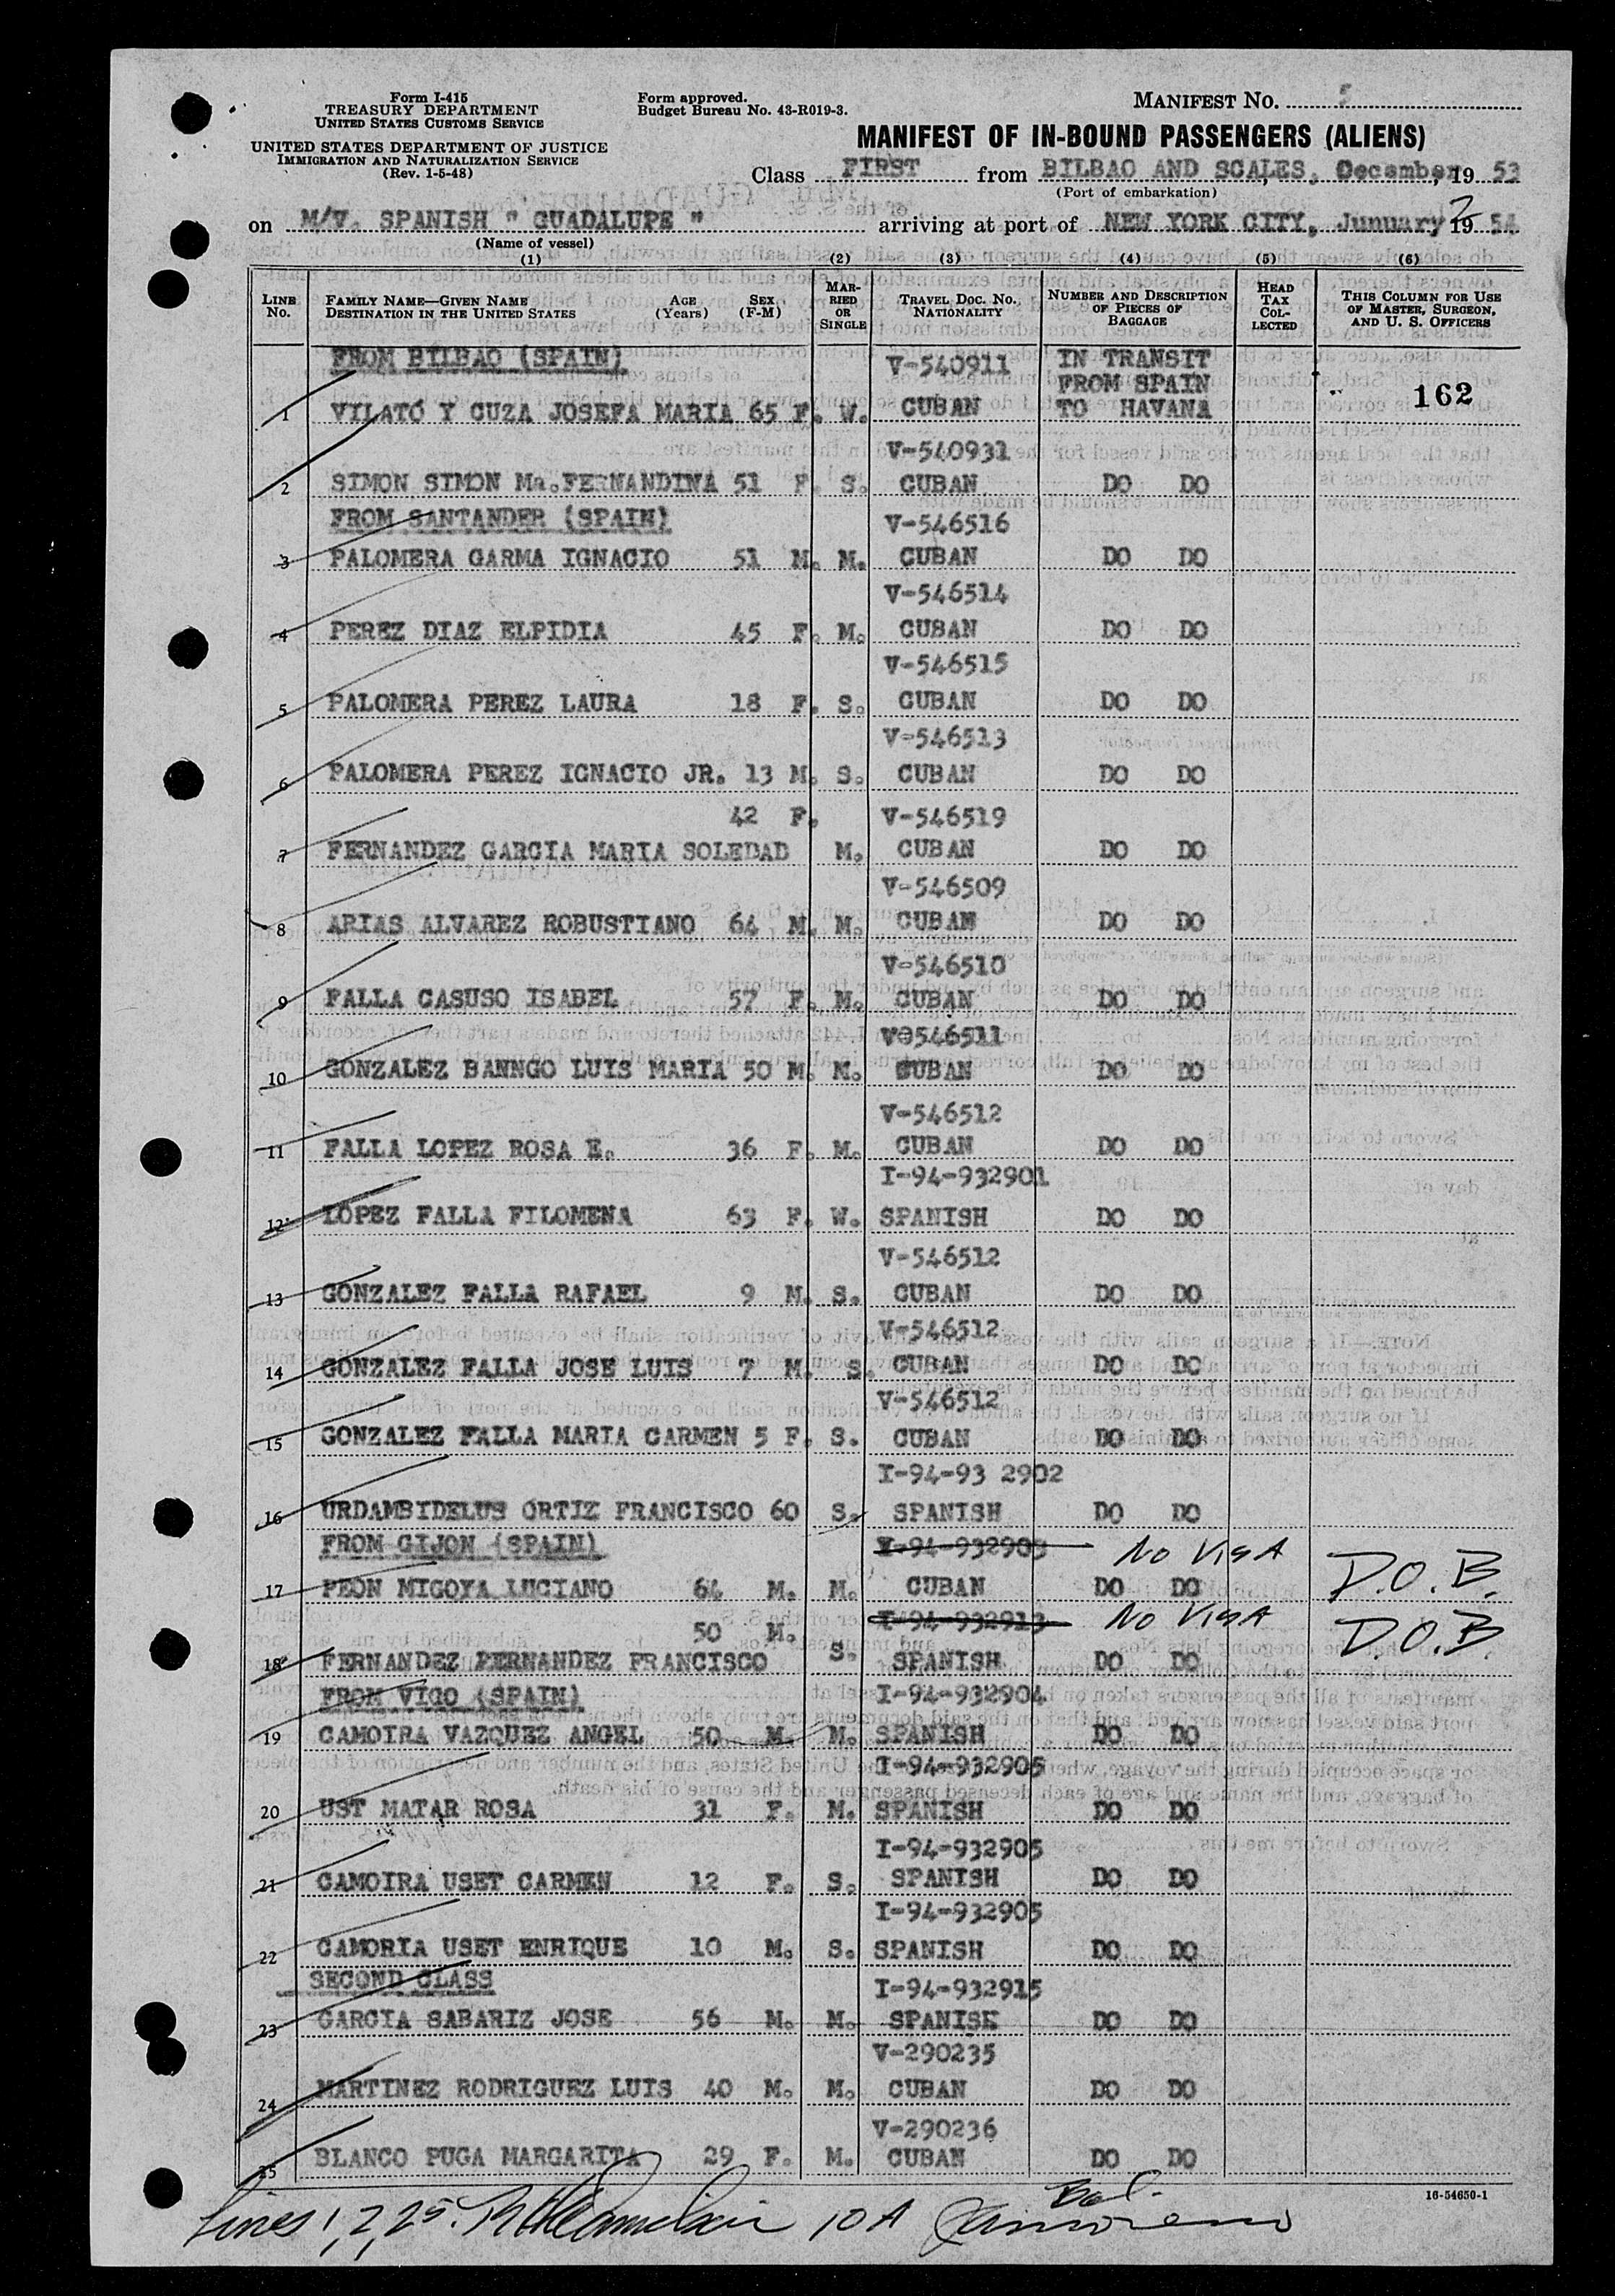 Form I-415
TREASURY DEPARTMENT
UNITED STATES CUSTOMS SERVICE
UNITED STATES DEPARTMENT OF JUSTICE
IMMIGRATION AND NATURALIZATION SERVICE
(Rev. 1-5-48)
Form approved.
Budget Bureau No. 43-R019-3.
MANIFEST NO. 5
MANIFEST OF IN-BOUND PASSENGERS (ALIENS)
Class FIRST from BILBAO AND SCALES, December, 19 53
(Port of embarkation)
on M/V. SPANISH " GUADALUPE " arriving at port of NEW YORK CITY, Junuary 2 19 54
(Name of vessel)
(1) (2) (3) (4) (5) (6)
LINE No. FAMILY NAME—GIVEN NAME DESTINATION IN THE UNITED STATES AGE (Years) SEX (F-M) MARRIED OR SINGLE TRAVEL DOC. NO. NATIONALITY NUMBER AND DESCRIPTION OF PIECES OF BAGGAGE HEAD TAX COLLECTED THIS COLUMN FOR USE OF MASTER, SURGEON, AND U. S. OFFICERS
FROM BILBAO (SPAIN) V-540911 IN TRANSIT FROM SPAIN
1 VILATÓ Y CUZA JOSEFA MARIA 65 F. W. CUBAN TO HAVANA 162
V-540931
2 SIMON SIMON Ma.FERNANDINA 51 F. S. CUBAN DO DO
FROM SANTANDER (SPAIN) V-546516
3 PALOMERA GARMA IGNACIO 51 M. M. CUBAN DO DO
V-546514
4 PEREZ DIAZ ELPIDIA 45 F. M. CUBAN DO DO
V-546515
5 PALOMERA PEREZ LAURA 18 F. S. CUBAN DO DO
V-546513
6 PALOMERA PEREZ IGNACIO JR. 13 M. S. CUBAN DO DO
42 F. V-546519
7 FERNANDEZ GARCIA MARIA SOLEDAD M. CUBAN DO DO
V-546509
8 ARIAS ALVAREZ ROBUSTIANO 64 M. M. CUBAN DO DO
V-546510
9 FALLA CASUSO ISABEL 57 F. M. CUBAN DO DO
V-546511
10 GONZALEZ BANNGO LUIS MARIA 50 M. M. CUBAN DO DO
V-546512
11 FALLA LOPEZ ROSA E. 36 F. M. CUBAN DO DO
I-94-932901
12 LOPEZ FALLA FILOMENA 63 F. W. SPANISH DO DO
V-546512
13 GONZALEZ FALLA RAFAEL 9 M. S. CUBAN DO DO
V-546512
14 GONZALEZ FALLA JOSE LUIS 7 M. S. CUBAN DO DO
V-546512
15 GONZALEZ FALLA MARIA CARMEN 5 F. S. CUBAN DO DO
I-94-93 2902
16 URDAMBIDELUS ORTIZ FRANCISCO 60 S. SPANISH DO DO
FROM GIJON (SPAIN) I-94-932903 No VISA D.O.B.
17 PEON MIGOYA LUCIANO 64 M. M. CUBAN DO DO
50 M. I-94-932913 No VISA D.O.B.
18 FERNANDEZ FERNANDEZ FRANCISCO S. SPANISH DO DO
FROM VIGO (SPAIN) I-94-932904
19 CAMOIRA VAZQUEZ ANGEL 50 M. M. SPANISH DO DO
I-94-932905
20 UST MATAR ROSA 31 F. M. SPANISH DO DO
I-94-932905
21 CAMOIRA USET CARMEN 12 F. S. SPANISH DO DO
I-94-932905
22 CAMORIA USET ENRIQUE 10 M. S. SPANISH DO DO
SECOND CLASS I-94-932915
23 GARCIA SABARIZ JOSE 56 M. M. SPANISH DO DO
V-290235
24 MARTINEZ RODRIGUEZ LUIS 40 M. M. CUBAN DO DO
V-290236
25 BLANCO PUGA MARGARITA 29 F. M. CUBAN DO DO
16-54650-1
Lines 1, 2, 25. 10 A Bal.